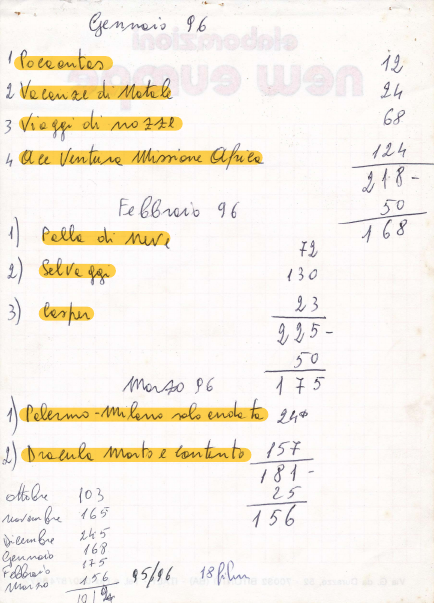 Gennaio 96
1 Pocaontas 12
2 Vacanze di Natale 24
3 Viaggi di nozze 68
4 Ace Ventura Missione Africa 124
218-
50
168
Febbraio 96
1) Palla di Neve 72
2) Selvaggi 130
3) Casper 23
225-
50
175
Marzo 96
1) Palermo-Milano solo andata 24
2) Dracula Morto e contento 157
181-
25
156
ottobre 103
novembre 165
Dicembre 245
Gennaio 168
Febbraio 175
Marzo 156 95/96 18 film
elaborazioni
new europe